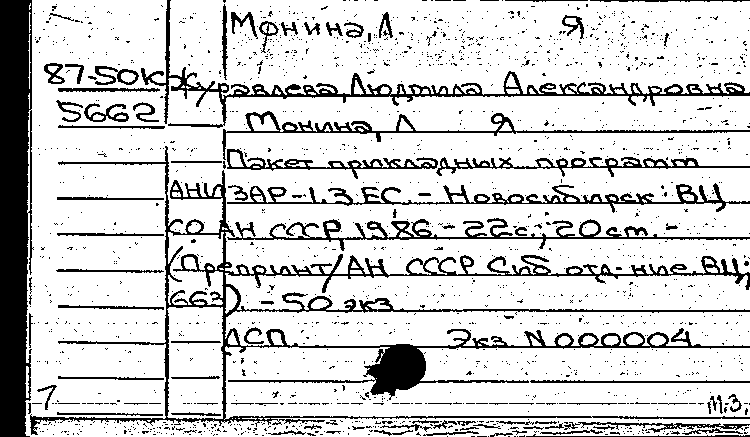 Монина, Л Я
87-50К Журавлева, Людмила Александровна
5662 Монина, Л Я
Пакет прикладных программ
АНИЗАР-1.3 ЕС. - Новосибирск: ВЦ
СО АН СССР, 1986. - 22с.; 20 см. -
(Препринт/АН СССР Сиб. отд-ние. ВЦ;
663). - 50 экз
ДСП. Экз N000004.
1 М.З.